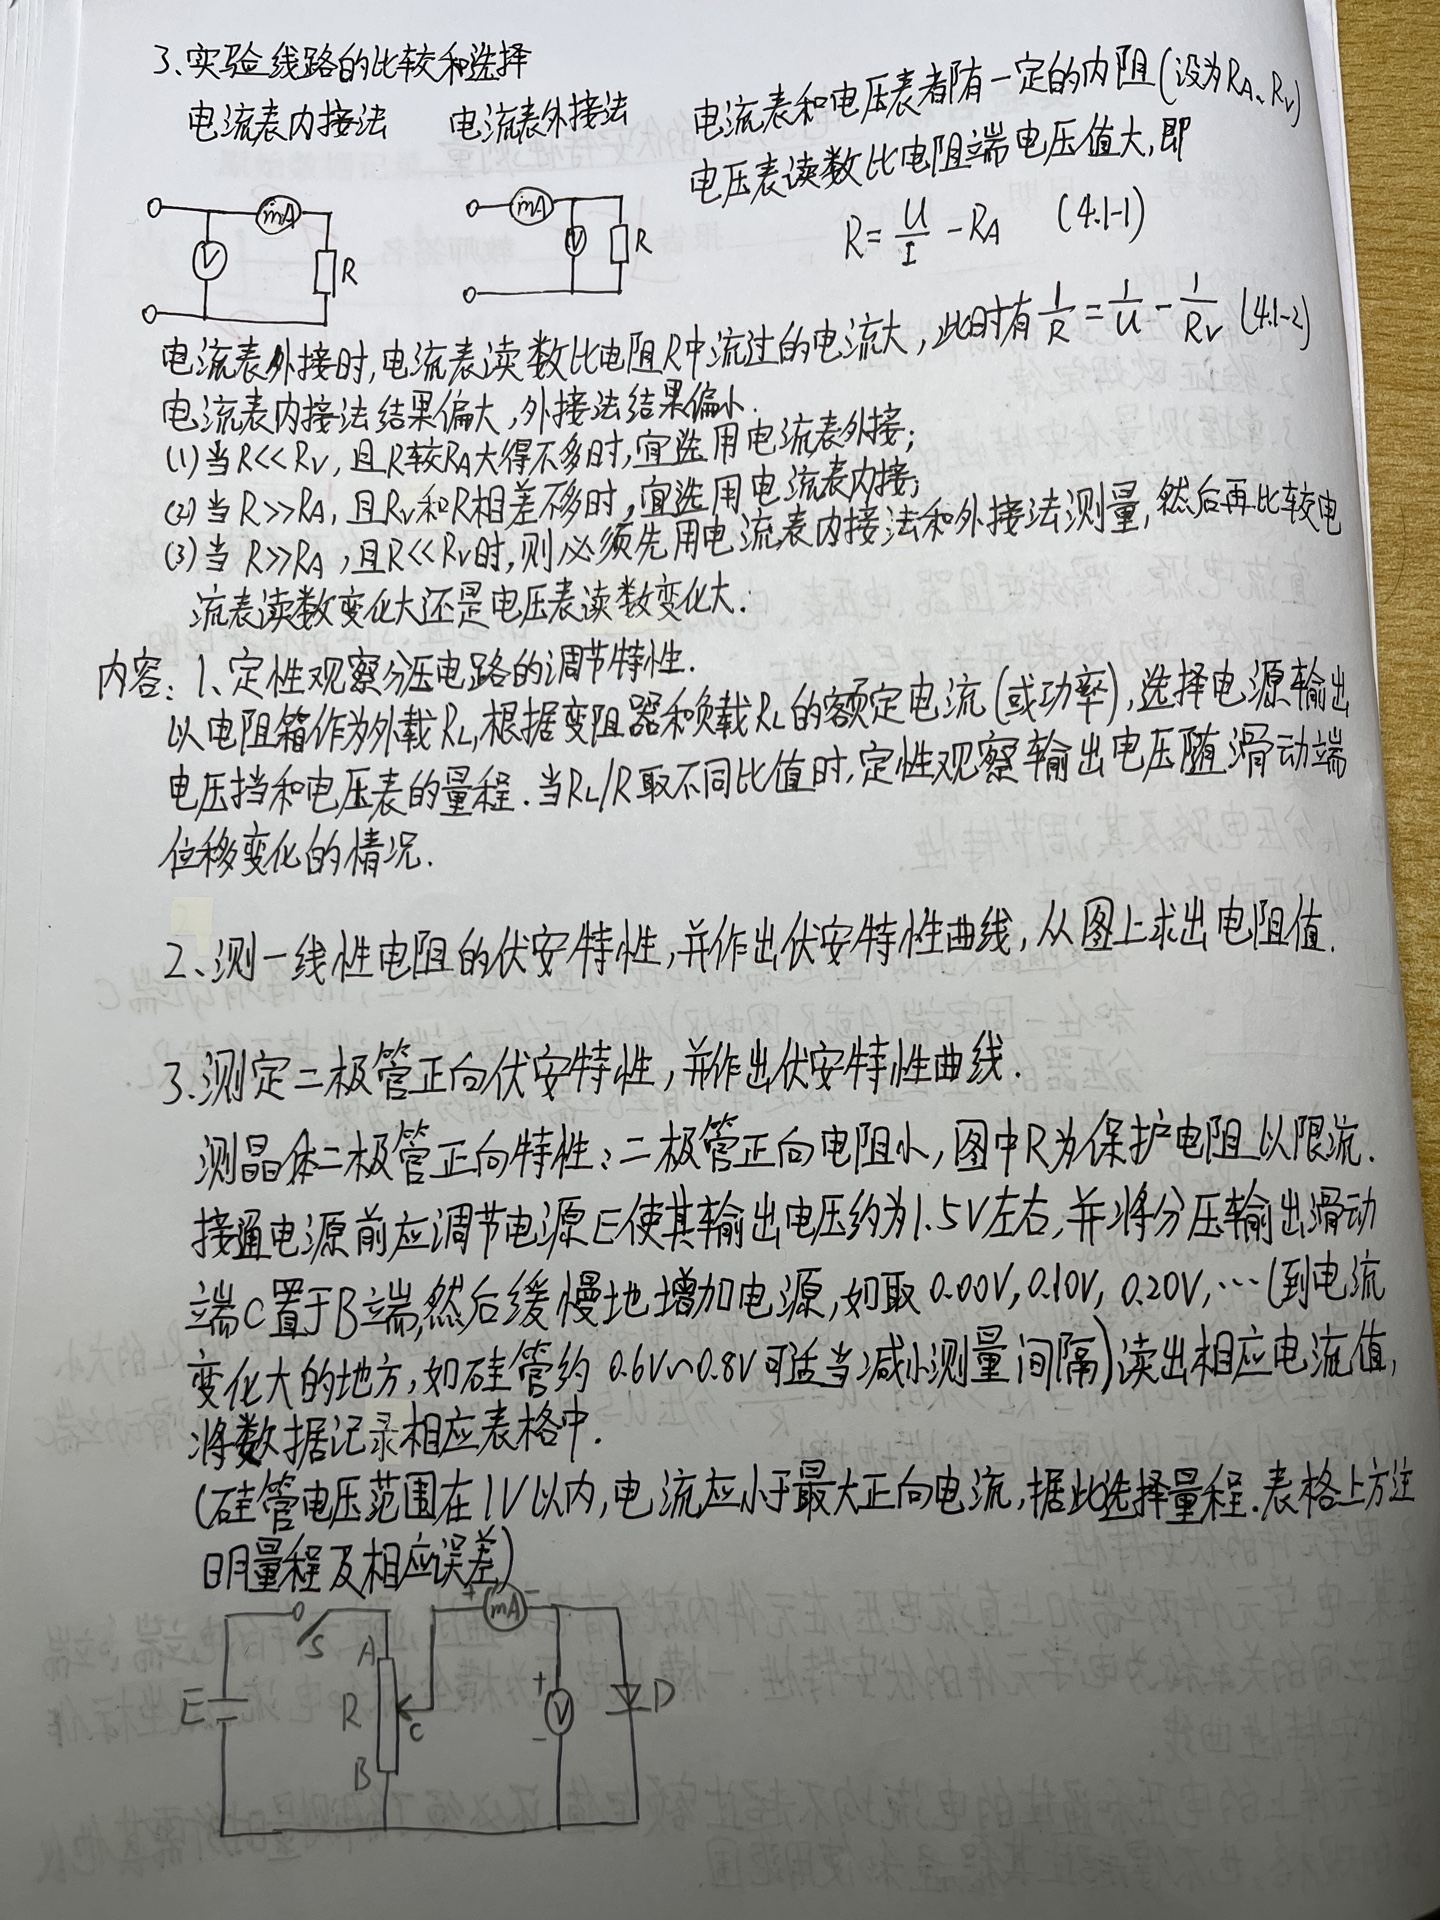 3、实验线路的比较和选择
电流表内接法 电流表外接法
mA
V
R
mA
V
R
电流表和电压表都有一定的内阻(设为RA、RV)
电压表读数比电阻端电压值大,即
R=U/I-RA (4.1-1)
电流表外接时,电流表读数比电阻R中流过的电流大,此时有1/R=1/U-1/RV (4.1-2)
电流表内接法结果偏大,外接法结果偏小.
(1)当R<<RV,且R较RA大得不多时,宜选用电流表外接;
(2)当R>>RA,且RV和R相差不多时,宜选用电流表内接;
(3)当R>>RA,且R<<RV时,则必须先用电流表内接法和外接法测量,然后再比较电
流表读数变化大还是电压表读数变化大.
内容:1、定性观察分压电路的调节特性.
以电阻箱作为外载RL,根据变阻器和负载RL的额定电流(或功率),选择电源输出
电压挡和电压表的量程.当RL/R取不同比值时,定性观察输出电压随滑动端
位移变化的情况.
2、测一线性电阻的伏安特性,并作出伏安特性曲线,从图上求出电阻值.
3.测定二极管正向伏安特性,并作出伏安特性曲线.
测晶体二极管正向特性:二极管正向电阻小,图中R为保护电阻以限流.
接通电源前应调节电源E使其输出电压约为1.5V左右,并将分压输出滑动
端C置于B端,然后缓慢地增加电源,如取0.00V,0.10V,0.20V,…(到电流
变化大的地方,如硅管约0.6V~0.8V可适当减小测量间隔)读出相应电流值,
将数据记录相应表格中.
(硅管电压范围在1V以内,电流应小于最大正向电流,据此选择量程.表格上方注
明量程及相应误差)
+ mA -
S
A
E
R
C
B
+
V
-
D